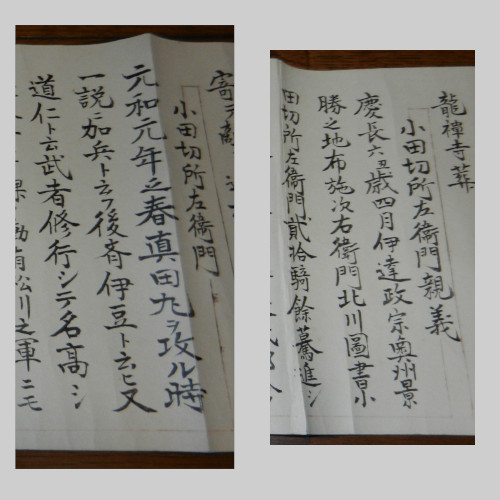 小田切所左衛門
元和元年之春真田丸ヲ攻ル時
一説ニ加兵ト云フ後斉伊豆ト云ヒ又
道仁ト云武者修行シテ名高シ
働有松川之軍ニモ
龍禪寺葬
小田切所左衛門親義
慶長六丑歳四月伊達政宗奥州景
勝之地布施次右衛門北川圖書小
田切所左衛門貳拾騎餘驀進シ